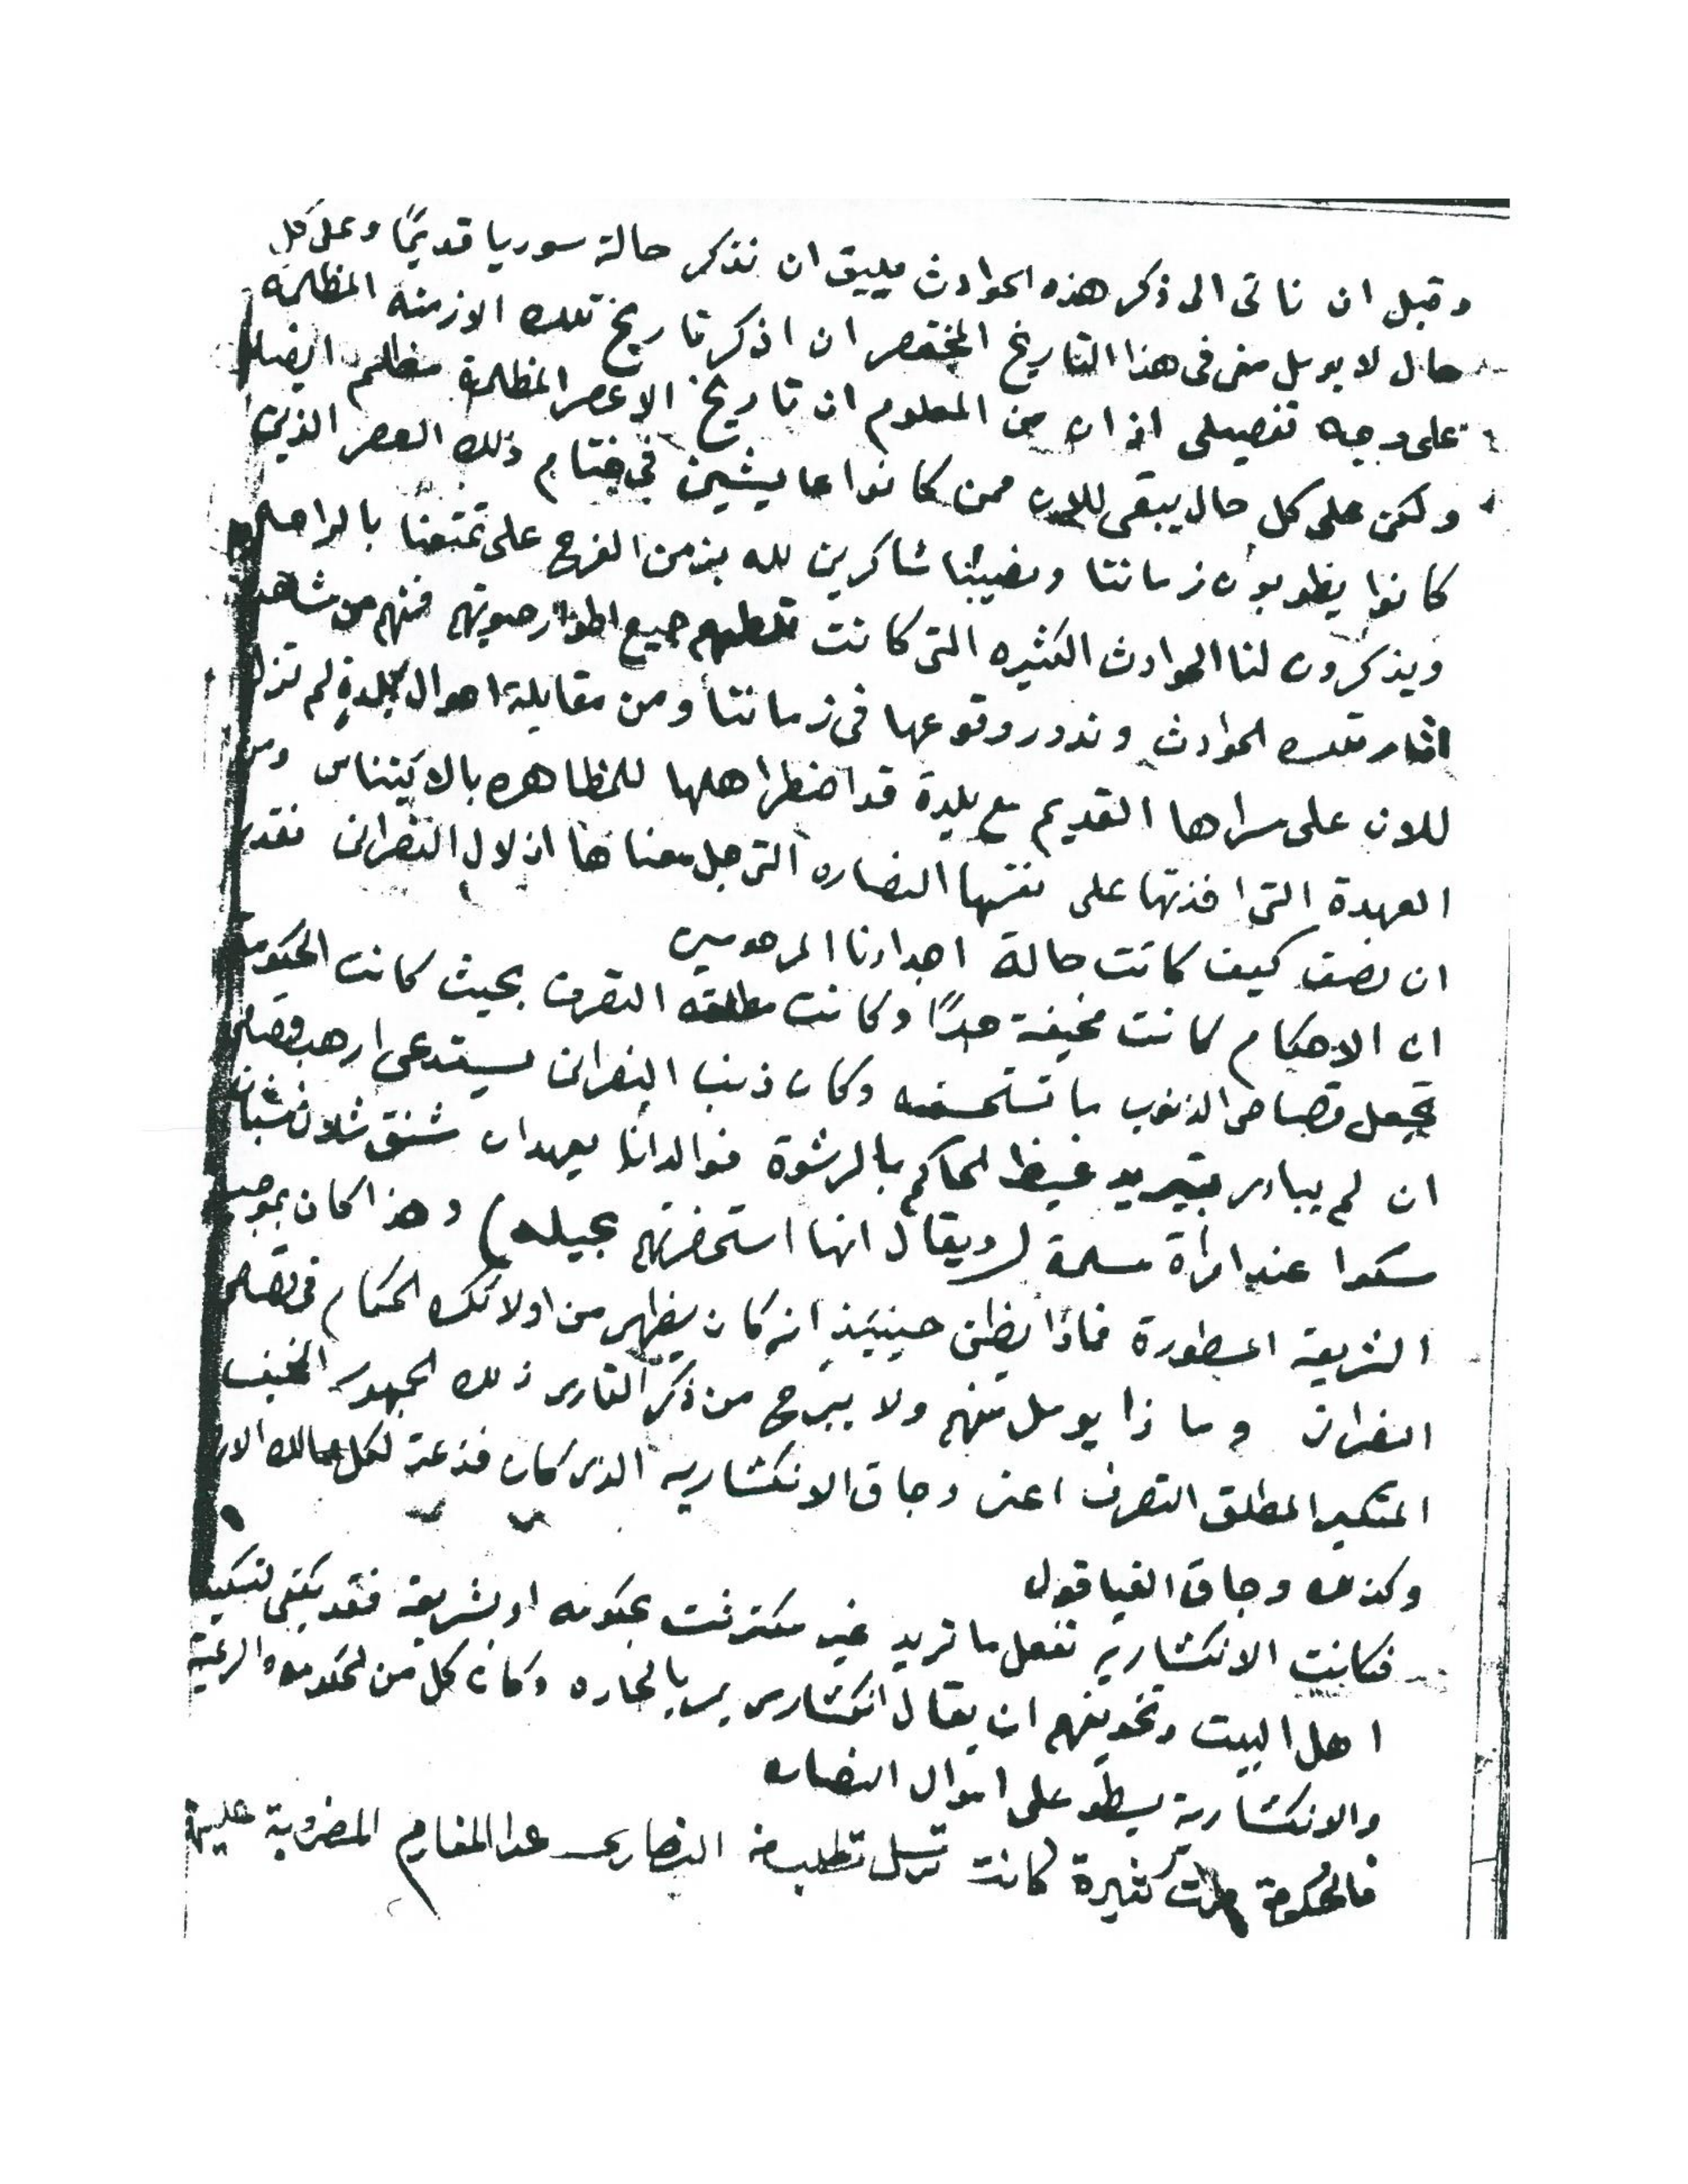 وقبل ان ناتى الى ذكر هذه الحوادث يليق ان نذكر حالة سوريا قديمًا وعلى كل
حال لا يومل منى فى هذا التاريخ المختصر ان اذكر تاريخ تلك الازمنه المظلمه
على وجه تفصيلى اذ ان من المعلوم ان تاريخ الاعصر المظلمة مظلم ايضا
ولكن على كل حال يبقى للان ممن كانوا عايشين فى ختام ذلك العصر الذين
كانوا يطوبون زماننا ونصيبنا شاكرين لله بزمن الفرج على تمتعنا بالراحه
ويذكرون لنا الحوادث الكثيره التى كانت جميع اطوار حيوتهم فمنهم من شاهد
اثار تلك الحوادث وندور وقوعها فى زماننا ومن مقابلة احوال بلدةٍ لم تزل
للان على سراها القديم مع بلدة قد اضطر اهلها للمظاهره بالايتناس ومن
العهدة التى اخذتها على نفسها النصاره التى جل معناها اذلال النصرانى نقدر
ان نصف كيف كانت حالة اجدادنا المرحومين
ان الاحكام كانت مخيفة جدًا وكانت مطلقه التصرف بحيث كانت الحكومة
تجعل قصاص الذنوب ما تستحسنه وكان ذنب النصرانى يستدعى ارهب قصاص
ان لم يبادر بتبريد غيظ الحاكم بالرشوة فوالدانا يعهدان شنق ثلاث شبان
مسكوا عند امرأة مسلمة (ويقال انها استحضرتهم بحيله) وهذا كان بموجب
الشريعه المسطورة فماذا يظن حينيئذٍ انه كان يظهر من اولائك الحكام فى قصاص
النصرانى وماذا يومل منهم ولا يبرح من ذكر القارى ذلك الجمهور المخيف
المتكبر المطلق التصرف اعنى وجاق الانكشاريه الذى كان فذعة لكل ممالك الارض
وكذلك وجاق القباقول
فكانت الانكشارية تفعل ما تريد غير مكترثت بحكومه او شريعة فقد يكفى لتسكيت
اهل البيت وتخويفهم ان يقال انكشارى مر بالحاره وكان كل من الحكومه والرعية
والانكشارية يسطو على اموال النصاره
فالحكومة مرات كثيرة كانت ترسل تطلب من النصارى عدا المغارم المضروبة عليهم